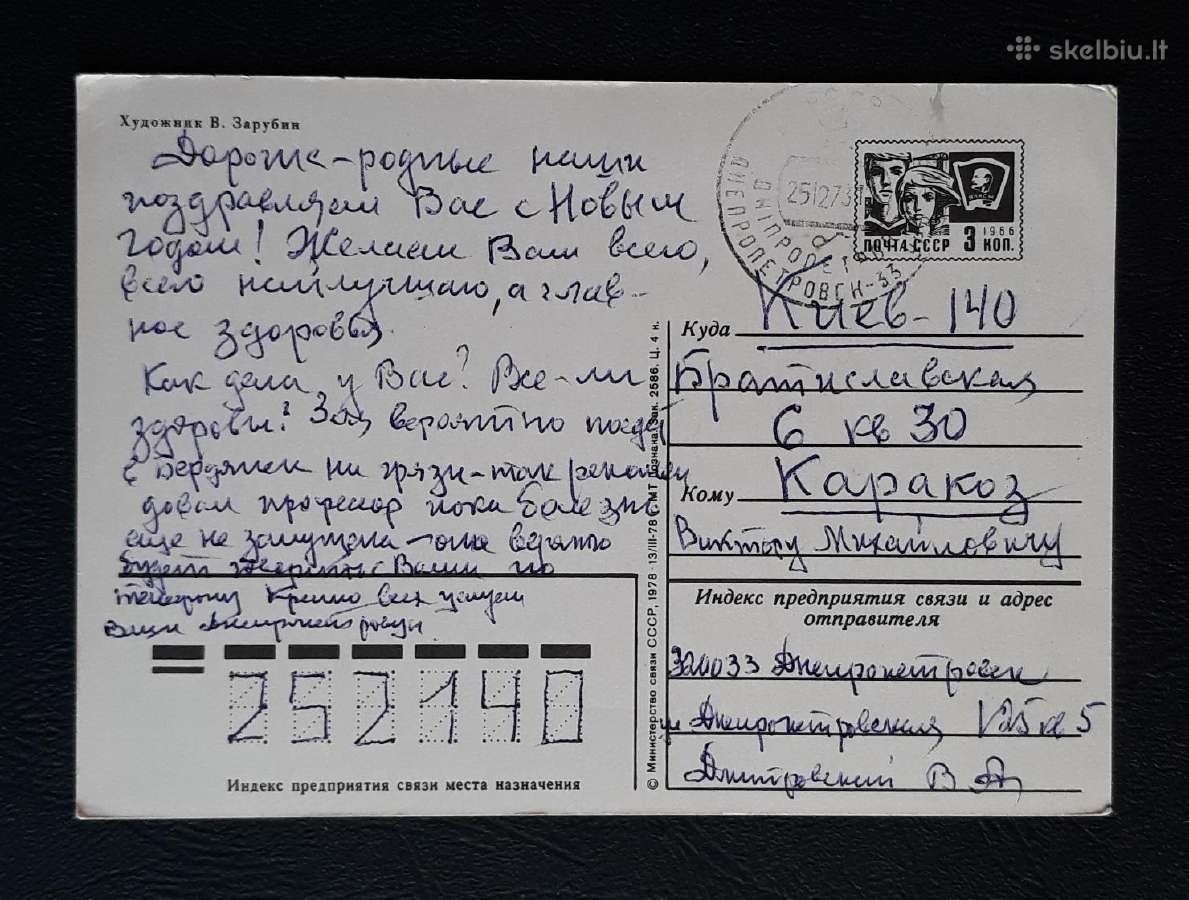 skelbiu.lt
Художник В. Зарубин
Дорогие-родные наши
поздравляем Вас с Новым
годом! Желаем Вам всего,
всего наилучшего, а глав-
ное здоровья.
Как дела у Вас? Все-ли
здоровы? Зоя вероятно поедет
в Бердянск на грязи-так рекомен
довал профессор пока болезнь
еще не запущена-она
будет Вами по
телефону Крепко всех целуем
Ваши
252140
Индекс предприятия связи места назначения
© Министерство связи СССР, 1978 · 13/III-78 Зак. 2586. Ц. 4 к.
ДНІПРОПЕТРОВСЬК
ДНЕПРОПЕТРОВСК-33
ПОЧТА СССР 3 КОП.
1966
Куда Киев-140
Братиславская
6 кв 30
Кому Каракоз
Виктору Михайловичу
Индекс предприятия связи и адрес
отправителя
320033 Днепропетровск
Днепропетровская 5
Дмитровский В А